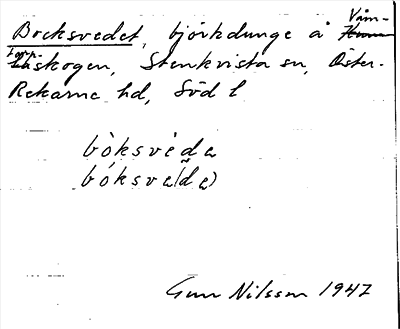 Bocksvedet, björkdunge å Våm-
torp-
skogen, Stenkvista sn, Öster-
Rekarne hd, Söd l
bòksvéda
bóksve(d̃a)
Gun Nilsson 1947